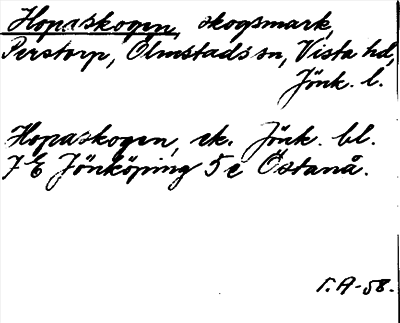 Hopaskogen, skogsmark,
Perstorp, Ölmstads sn, Vista hd,
Jönk. l.
Hopaskogen, ek. Jönk. bl.
7 E Jönköping 5 e Östanå.
T. A-58.